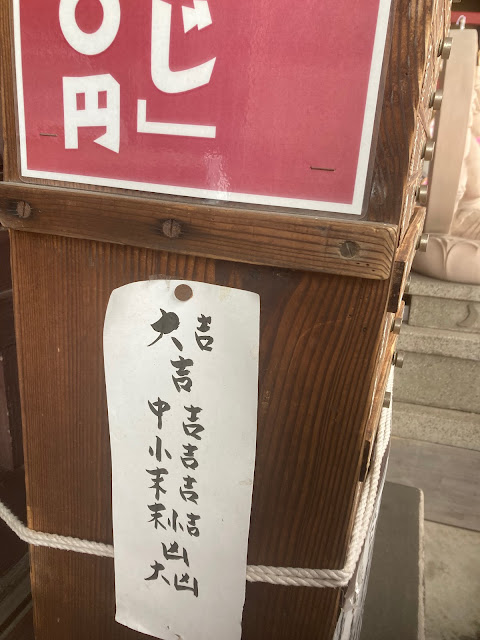 じ」
0円
大吉
吉
中吉
小吉
末吉
末小吉
凶
大凶